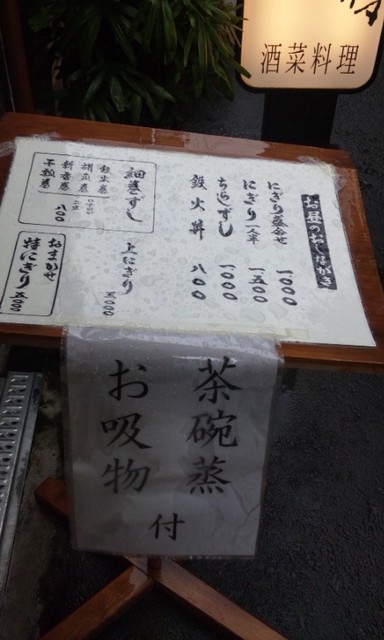 酒菜料理
お昼のおしながき
にぎり盛合せ 一〇〇〇
にぎり一人半 一五〇〇
ちらしずし 一〇〇〇
鉄火丼 八〇〇
上にぎり
細巻ずし
鉄火巻
新香巻
干瓢巻
八〇〇
おまかせ
特にぎり
茶碗蒸
お吸物
付